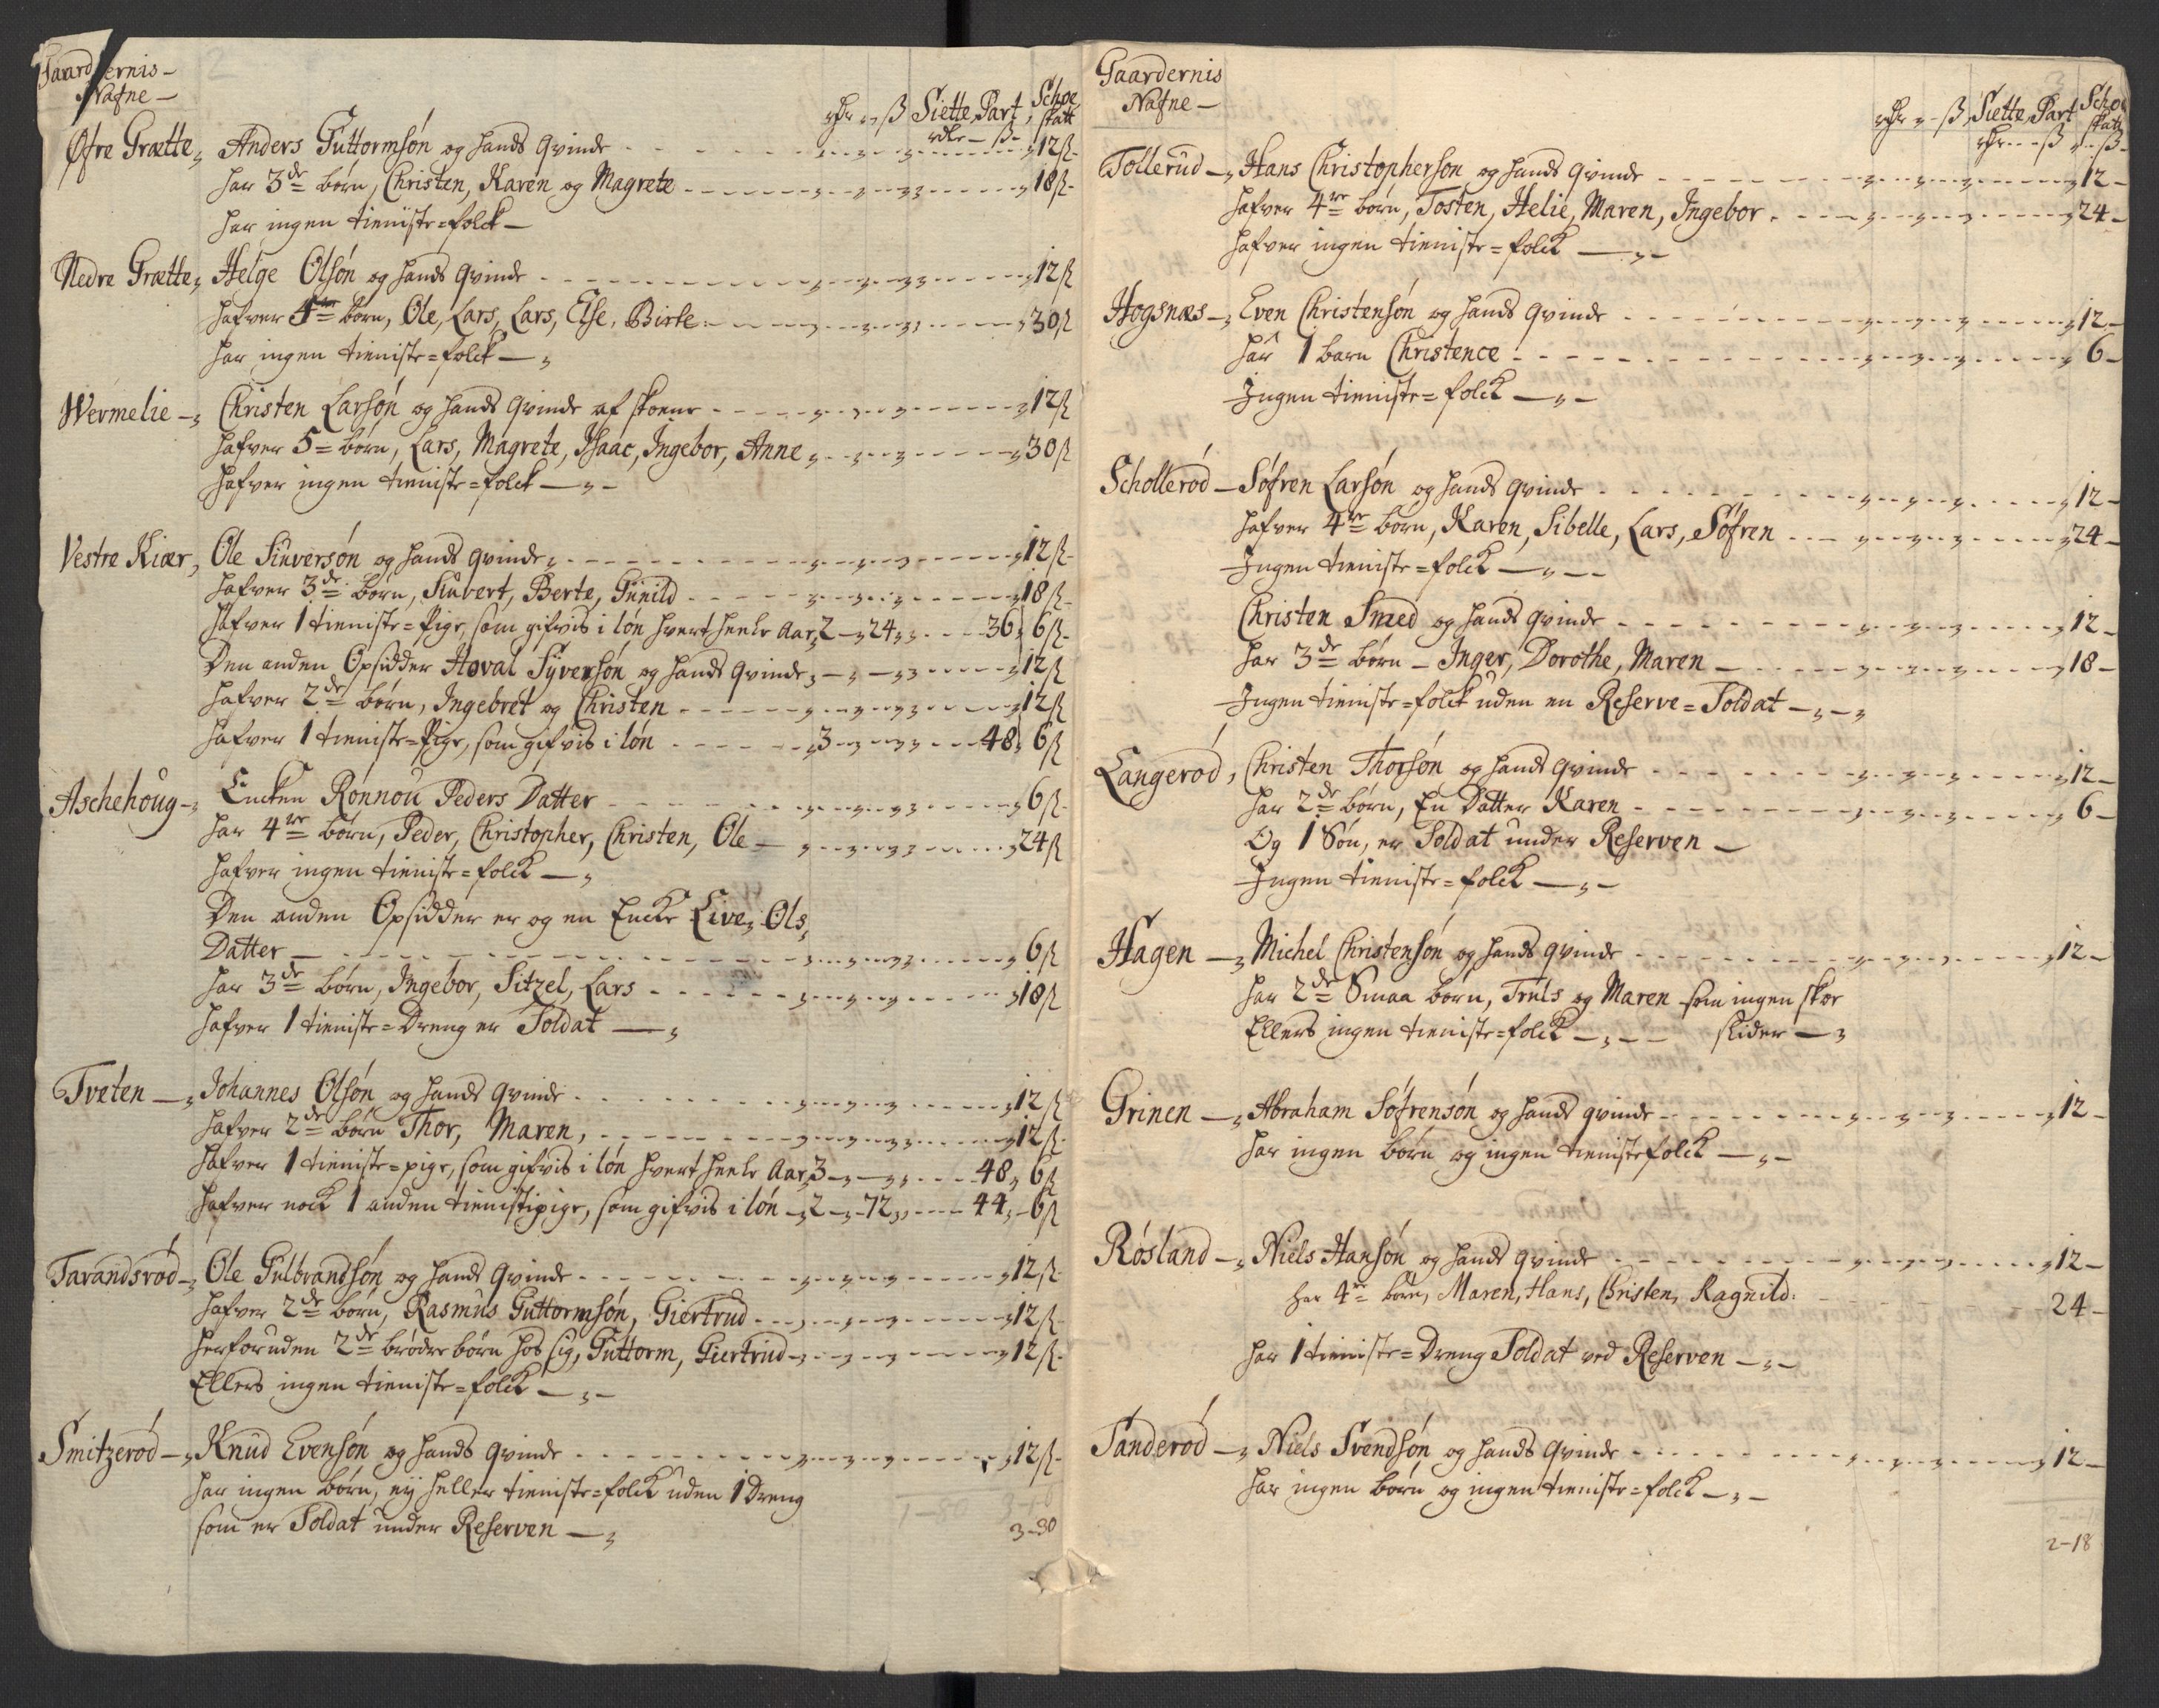 Gaardernis
Nafne
rdr ß Siette Part Schoe
skatt
rdr ß
Øfre Grætte, Anders Guttormsøn og hands qvinde 12 ß
har 3de børn, Christen, Karen og Magrete 18 ß
har ingen tieniste=folck
Nedre Grætte, Helge Olsøn og hands qvinde 12 ß
hafver børn, Ole, Lars, Lars, Else, Birte 30 ß
har ingen tieniste=folck
Wermelie Christen Larsøn og hands qvinde af skoene 12 ß
hafver 5 børn, Lars, Magrete, Isaac, Ingebor, Anne 30 ß
hafver ingen tieniste=folck
Vestre Kiær, Ole Siuversøn og hands qvinde 12 ß
hafver 3de børn, Siuvert, Berte, Gunild 18 ß
hafver 1 tieniste=Pige, som gifvis i løn hvert heele Aar 2 24 36 6 ß
Den anden Opsidder Hoval Syversøn og hands qvinde 12 ß
hafver 2de børn, Ingebret og Christen 12 ß
hafver 1 tieniste=Pige, som gifvis i løn 3 48 6 ß
Aschehoug Encken Rønnou Peders Datter 6 ß
har 4re børn, Peder, Christopher, Christen, Ole 24 ß
hafver ingen tieniste=folck
Den anden Opsidder er og en Encke Live Ols
Datter 6 ß
har 3de børn, Ingebor, Sitzel, Lars 18 ß
hafver 1 tieniste=Dreng er Soldat
Tveten Johannes Olsøn og hands qvinde 12 ß
hafver 2de børn Thor, Maren, 12 ß
hafver 1 tieniste=pige, som gifvis i løn hvert heele Aar 3 48 6 ß
hafver nock 1 anden tienistpige, som gifvis i løn 2 72 44 6 ß
Tarandsrød Ole Gulbrandsøn og hands qvinde 12 ß
hafver 2de børn, Rasmus Guttormsøn, Giertrud 12 ß
herforuden 2de brødre børn hos sig, Guttorm, Giertrud 12 ß
Ellers ingen tieniste=folck
Smitzerød Knud Evensøn og hands qvinde 12 ß
har ingen børn, ey heller tieniste=folck uden 1 Dreng
som er Soldat under Reserven
3-30
Gaardernis
Nafne
rdr ß Siette Part Schoe
skatt
rdr ß ß
Tollerud Hans Christophersøn og hands qvinde 12
hafver 4re børn, Tosten, Helie, Maren, Ingebor 24
hafver ingen tieniste=folck
Hogsnæs Even Christensøn og hands qvinde 12
har 1 barn Christence 6
Ingen tieniste=folck
Schollerød Søfren Larsøn og hands qvinde 12
hafver 4re børn, Karen, Sibelle, Lars, Søfren 24
Ingen tieniste=folck
Christen Smed og hands qvinde 12
har 3de børn Inger, Dorothe, Maren 18
Ingen tieniste=folck uden en Reserve=Soldat
Langerød, Christen Thorsøn og hands qvinde 12
har 2de børn, En Datter Karen 6
Og 1 Søn, er Soldat under Reserven
Ingen tieniste=folck
Hagen Michel Christensøn og hands qvinde 12
har 2de Smaa børn, Truls og Maren som ingen skoe
Ellers ingen tieniste=folck slider
Grinen Abraham Søfrensøn og hands qvinde 12
har ingen børn og ingen tienistefolck
Røsland Niels Hansøn og hands qvinde 12
har 4re børn, Maren, Hans, Christen, Ragnild 24
har 1 tieniste=Dreng Soldat ved Reserven
Sanderød Niels Svendsøn og hands qvinde 12
har ingen børn og ingen tieniste=folck
2-18